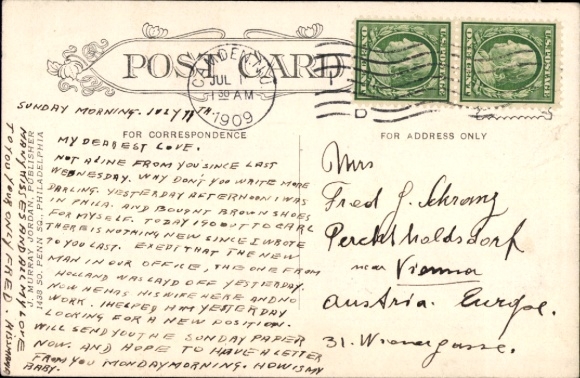 POST CARD
CAMDEN, N.J.
JUL
1 30 AM
1909
U.S. POSTAGE
ONE CENT
U.S. POSTAGE
ONE CENT
FOR CORRESPONDENCE
FOR ADDRESS ONLY
SUNDAY MORNING. JULY 11TH
MY DEAREST LOVE.
NOT A LINE FROM YOU SINCE LAST
WEDNESDAY. WHY DON'T YOU WRITE MORE
DARLING. YESTERDAY AFTERNOON I WAS
IN PHILA. AND BOUGHT BROWN SHOES
FOR MYSELF. TODAY I GO OUT TO CARL
THERE IS NOTHING NEW SINCE I WROTE
TO YOU LAST. THAT THE NEW
MAN IN OUR OFFICE, THE ONE FROM
HOLLAND WAS LAYD OFF YESTERDAY.
NOW HE HAS HIS WIFE HERE AND NO
WORK. I HELPED HIM YESTERDAY
LOOKING FOR A NEW POSITION.
WILL SEND YOU THE SUNDAY PAPER
NOW. AND HOPE TO HAVE A LETTER
FROM YOU MONDAY MORNING. HOW IS MY
BABY.
MANY KISSES AND ALL MY LOVE
TO YOU YOUR ONLY FRED.
S. MURRAY JORDAN, PUBLISHER
1438 SO. PENN SQ., PHILADELPHIA
Mrs
Fred J.
Perchtholdsdorf
near Vienna
Austria. Europe.
31. Wienergasse.